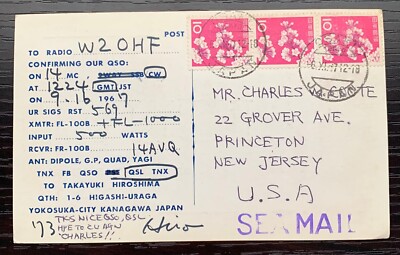 POST
TO RADIO W2OHF
CONFIRMING OUR QSO:
ON 14 MC, CW
AT 1224 GMT JST
ON 9.16 1967
UR SIGS RST 569
XMTR: FL-100B + FL-1000
INPUT 500 WATTS
RCVR: FR-100B 14AVQ
ANT: DIPOLE, G.P, QUAD, YAGI
TNX FB QSO QSL TNX
TO TAKAYUKI HIROSHIMA
QTH: 1-6 HIGASHI-URAGA
YOKOSUKA-CITY KANAGAWA JAPAN
TKS NICE QSO, QSL
HPE TO CU AGN
'73 "CHARLES"! Hiro
10 10 10
JAPAN
MR. CHARLES
22 GROVER AVE.
PRINCETON
NEW JERSEY
U.S.A
SEA MAIL